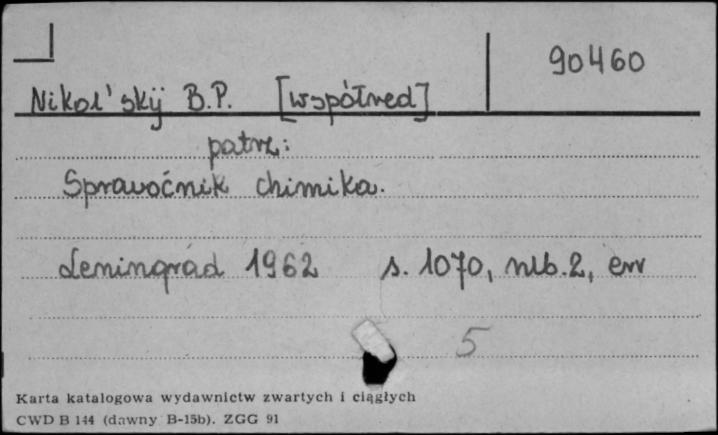 90460
Nikol'skij B.P. [współred]
patrz:
Spravoćnik chimika.
Leningrad 1962 s. 1070, nlb. 2, err
5
Karta katalogowa wydawnictw zwartych i ciągłych
CWD B 144 (dawny B-15b). ZGG 91